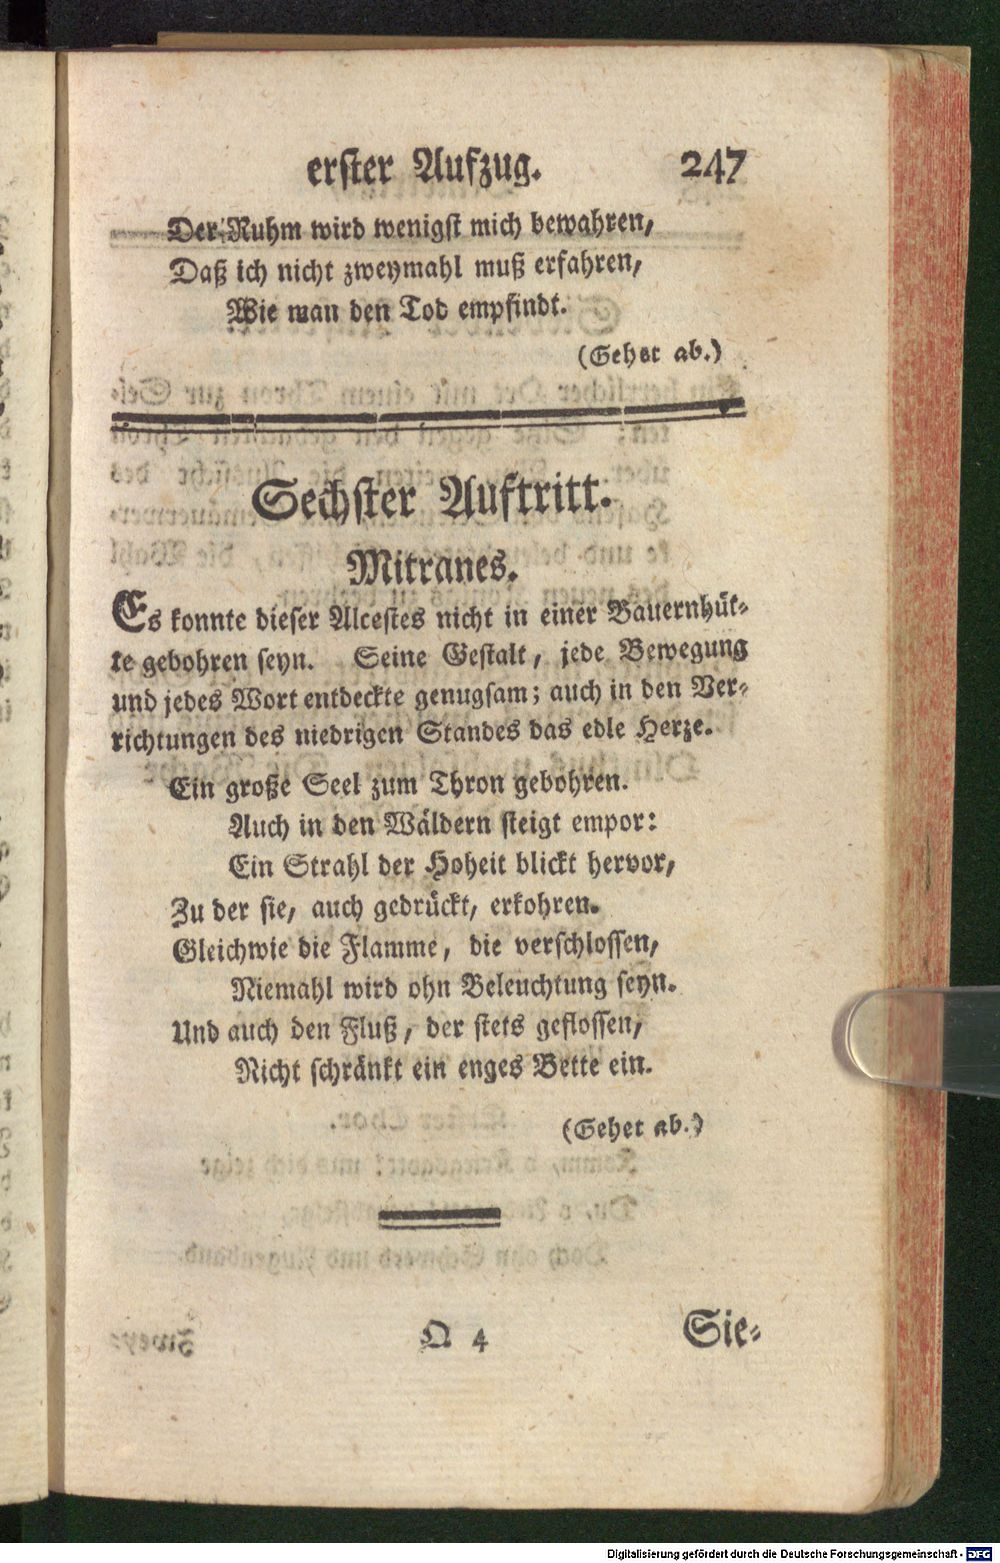 erster Aufzug. 247
Der Ruhm wird wenigst mich bewahren,
Daß ich nicht zweymahl muß erfahren,
Wie man den Tod empfindt.
(Gehet ab.)
Sechster Auftritt.
Mitranes.
Es konnte dieser Alcestes nicht in einer Bauernhüt-
te gebohren seyn. Seine Gestalt, jede Bewegung
und jedes Wort entdeckte genugsam; auch in den Ver-
richtungen des niedrigen Standes das edle Herze.
Ein große Seel zum Thron gebohren.
Auch in den Wäldern steigt empor:
Ein Strahl der Hoheit blickt hervor,
Zu der sie, auch gedrückt, erkohren.
Gleichwie die Flamme, die verschlossen,
Niemahl wird ohn Beleuchtung seyn.
Und auch den Fluß, der stets geflossen,
Nicht schränkt ein enges Bette ein.
(Gehet ab.)
Q 4 Sie-
Digitalisierung gefördert durch die Deutsche Forschungsgemeinschaft - DFG